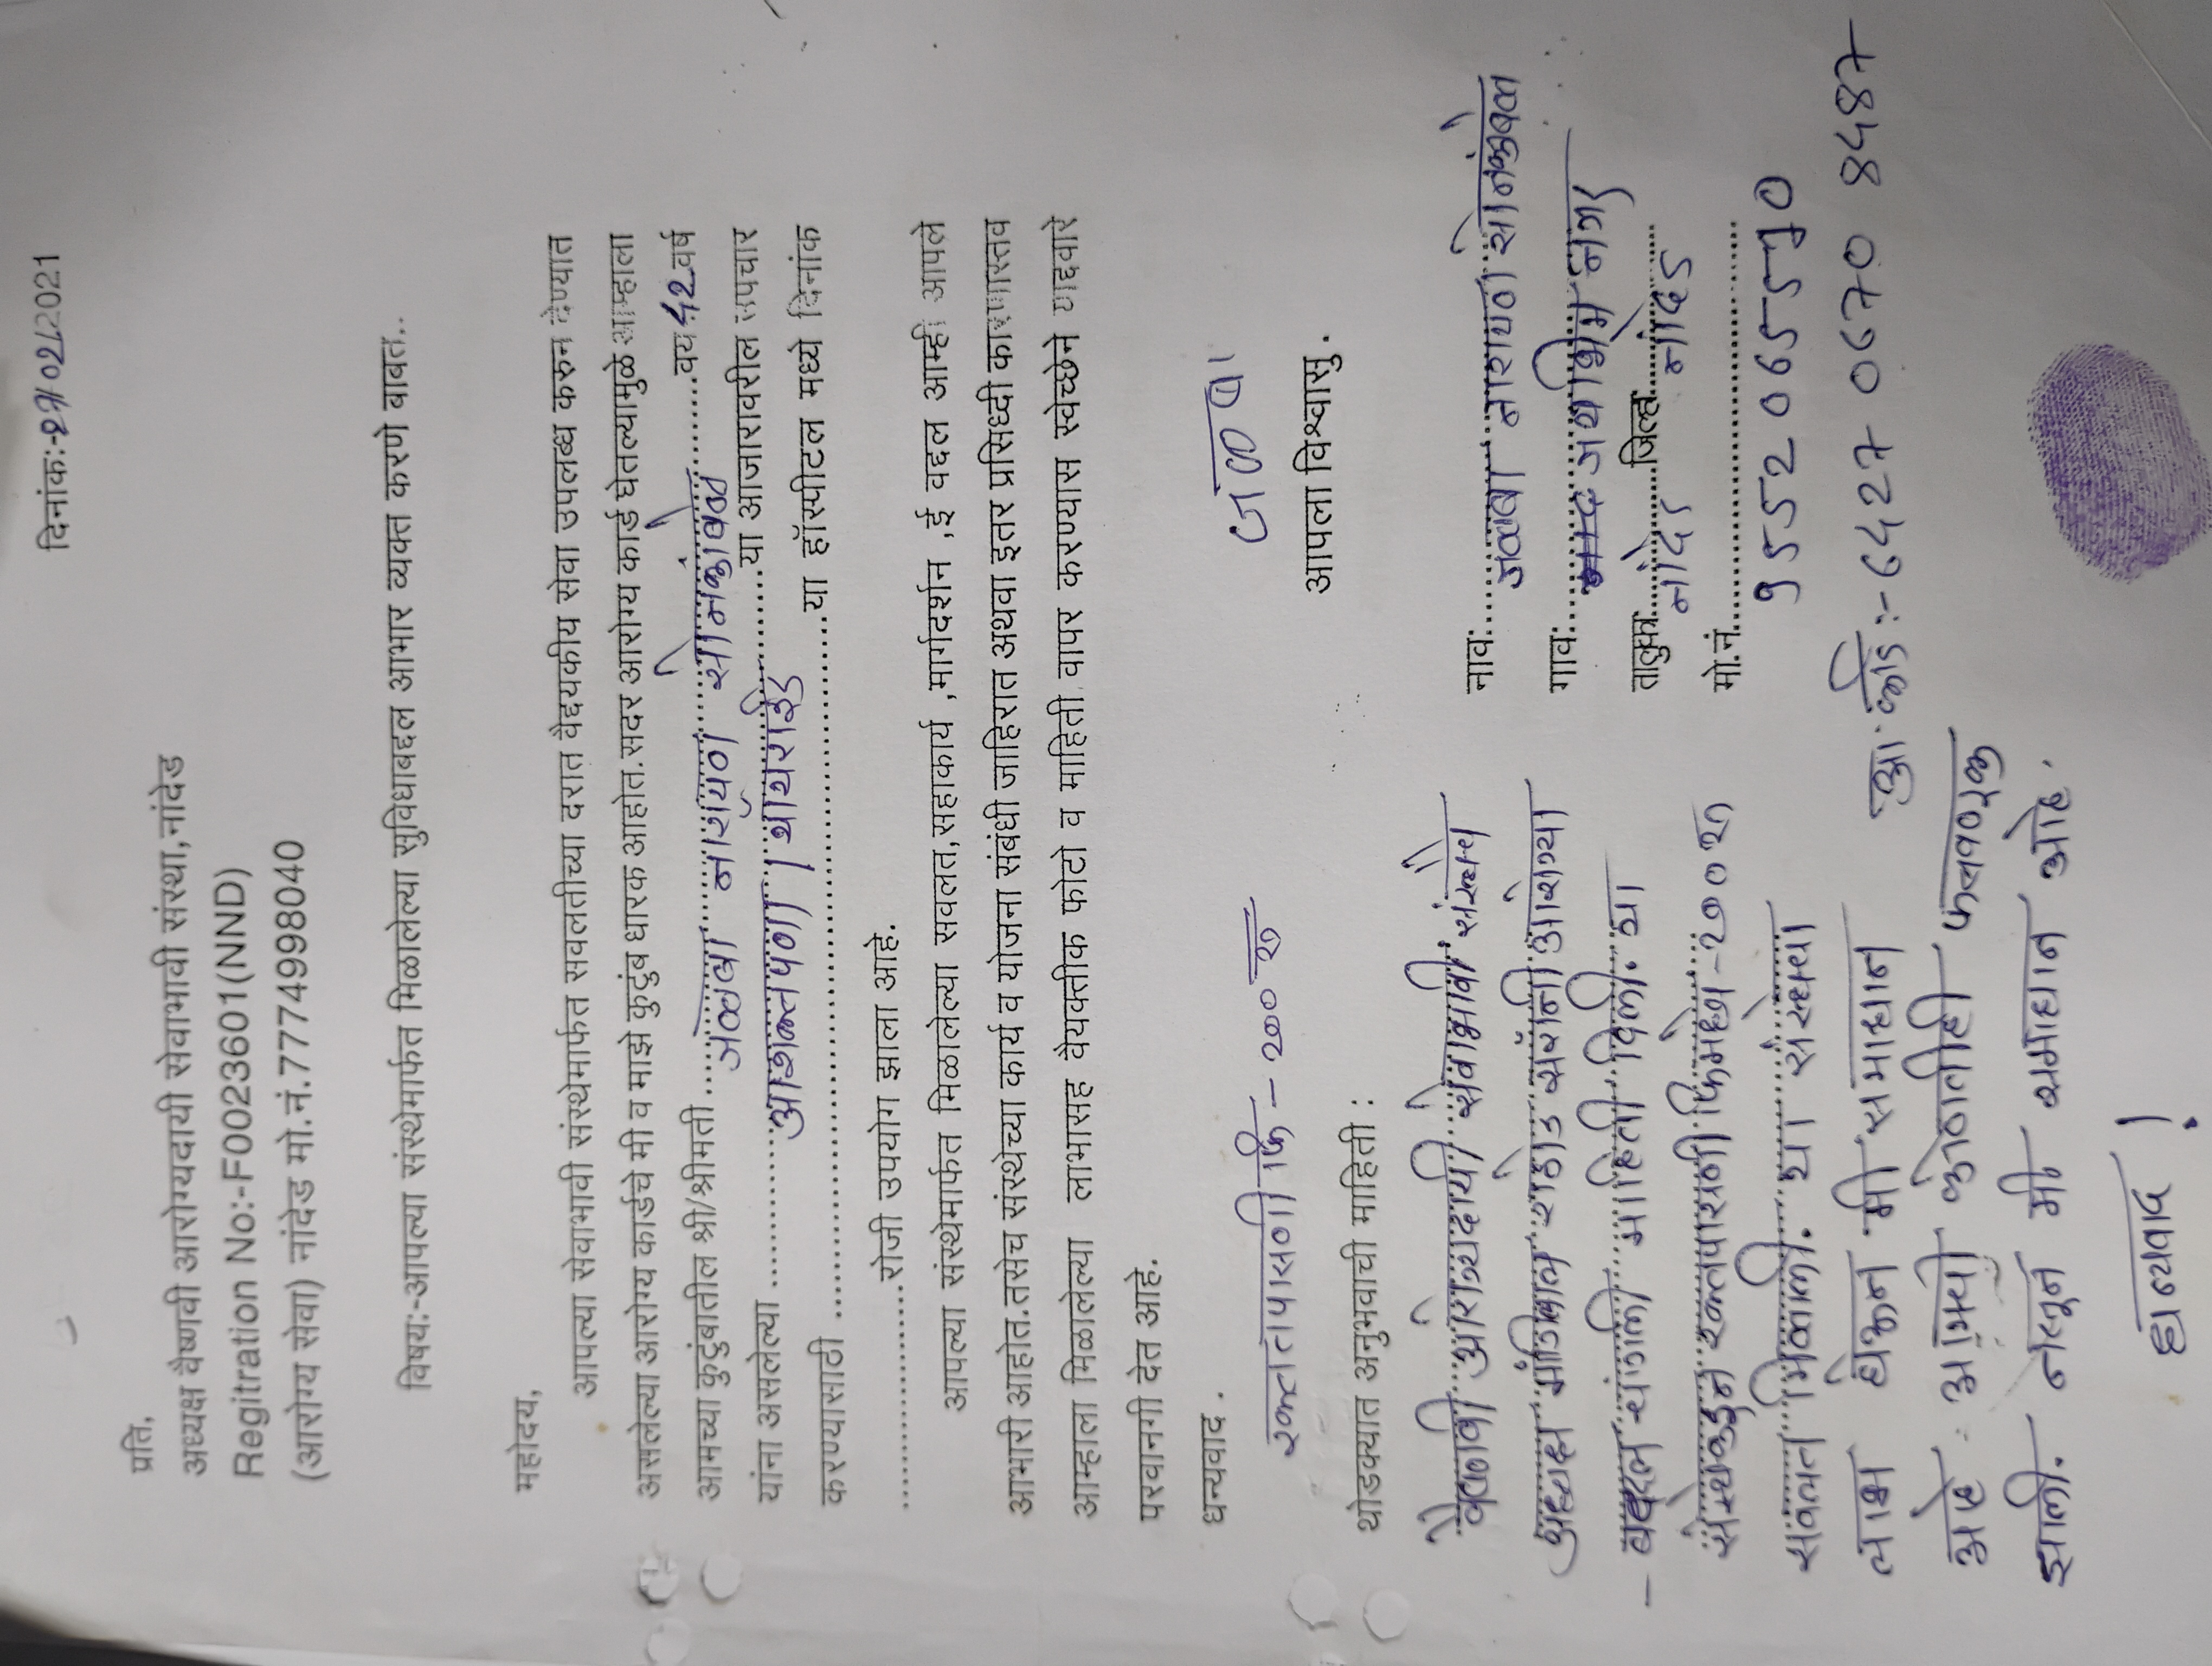 दिनांक:-  /02/2021
प्रति,
अध्यक्ष वैष्णवी आरोग्यदायी सेवाभावी संस्था,नांदेड
Regitration No:-F0023601(NND)
(आरोग्य सेवा) नांदेड मो.नं.7774998040
विषय:-आपल्या संस्थेमार्फत मिळालेल्या सुविधाबद्दल आभार व्यक्त करणे बाबत..
महोदय,
आपल्या सेवाभावी संस्थेमार्फत सवलतीच्या दरात वैद्यकीय सेवा उपलब्ध करुन देण्यात
असलेल्या आरोग्य कार्डचे मी व माझे कुटुंब धारक आहोत.सदर आरोग्य कार्ड घेतल्यामुळे आम्हाला
आमच्या कुटुंबातील श्री/श्रीमती ......जळबा नारायण सोनकांबळे.......वय:42वर्ष
यांना असलेल्या ............अशक्तपणा / थायराईड............या आजारावरील उपचार
करण्यासाठी ........................................................या हॉस्पीटल मध्ये दिनांक
.....................रोजी उपयोग झाला आहे.
आपल्या संस्थेमार्फत मिळालेल्या सवलत,सहाकार्य ,मार्गदर्शन ,ई बद्दल आम्ही आपले
आभारी आहोत.तसेच संस्थेच्या कार्य व योजना संबंधी जाहिरात अथवा इतर प्रसिध्दी कारणास्तव
आम्हाला मिळालेल्या लाभासह वैयक्तीक फोटो व माहिती वापर करण्यास स्वेच्छेने याद्वारे
परवानगी देत आहे.
धन्यवाद .
रक्तातपासणी फि - 200 रु
जळबा
आपला विश्वासु .
थोडक्यात अनुभवाची माहिती :
वैष्णवी आरोग्यदायी सेवाभावी संस्थेचे
अध्यक्ष माणिकराव राठोड सरांनी आरोग्या
-बद्दल चांगली माहिती दिली. या
संस्थेकडुन रक्तपासणी फिमध्ये-2१० रु
सवलत मिळाली. या संस्थेचा
लाभ घेऊन मी समाधान
आहे. आमची कोणतीही फसवणूक
झाली. नसून मी समाधान आहे.
धन्यवाद !
नाव:......जळबा नारायण सोनकांबळे
गाव:
तालुका......नांदेड......जिल्हा......नांदेड
मो.नं...............................
9552065510
आ.कार्ड :-6427 0670 8487